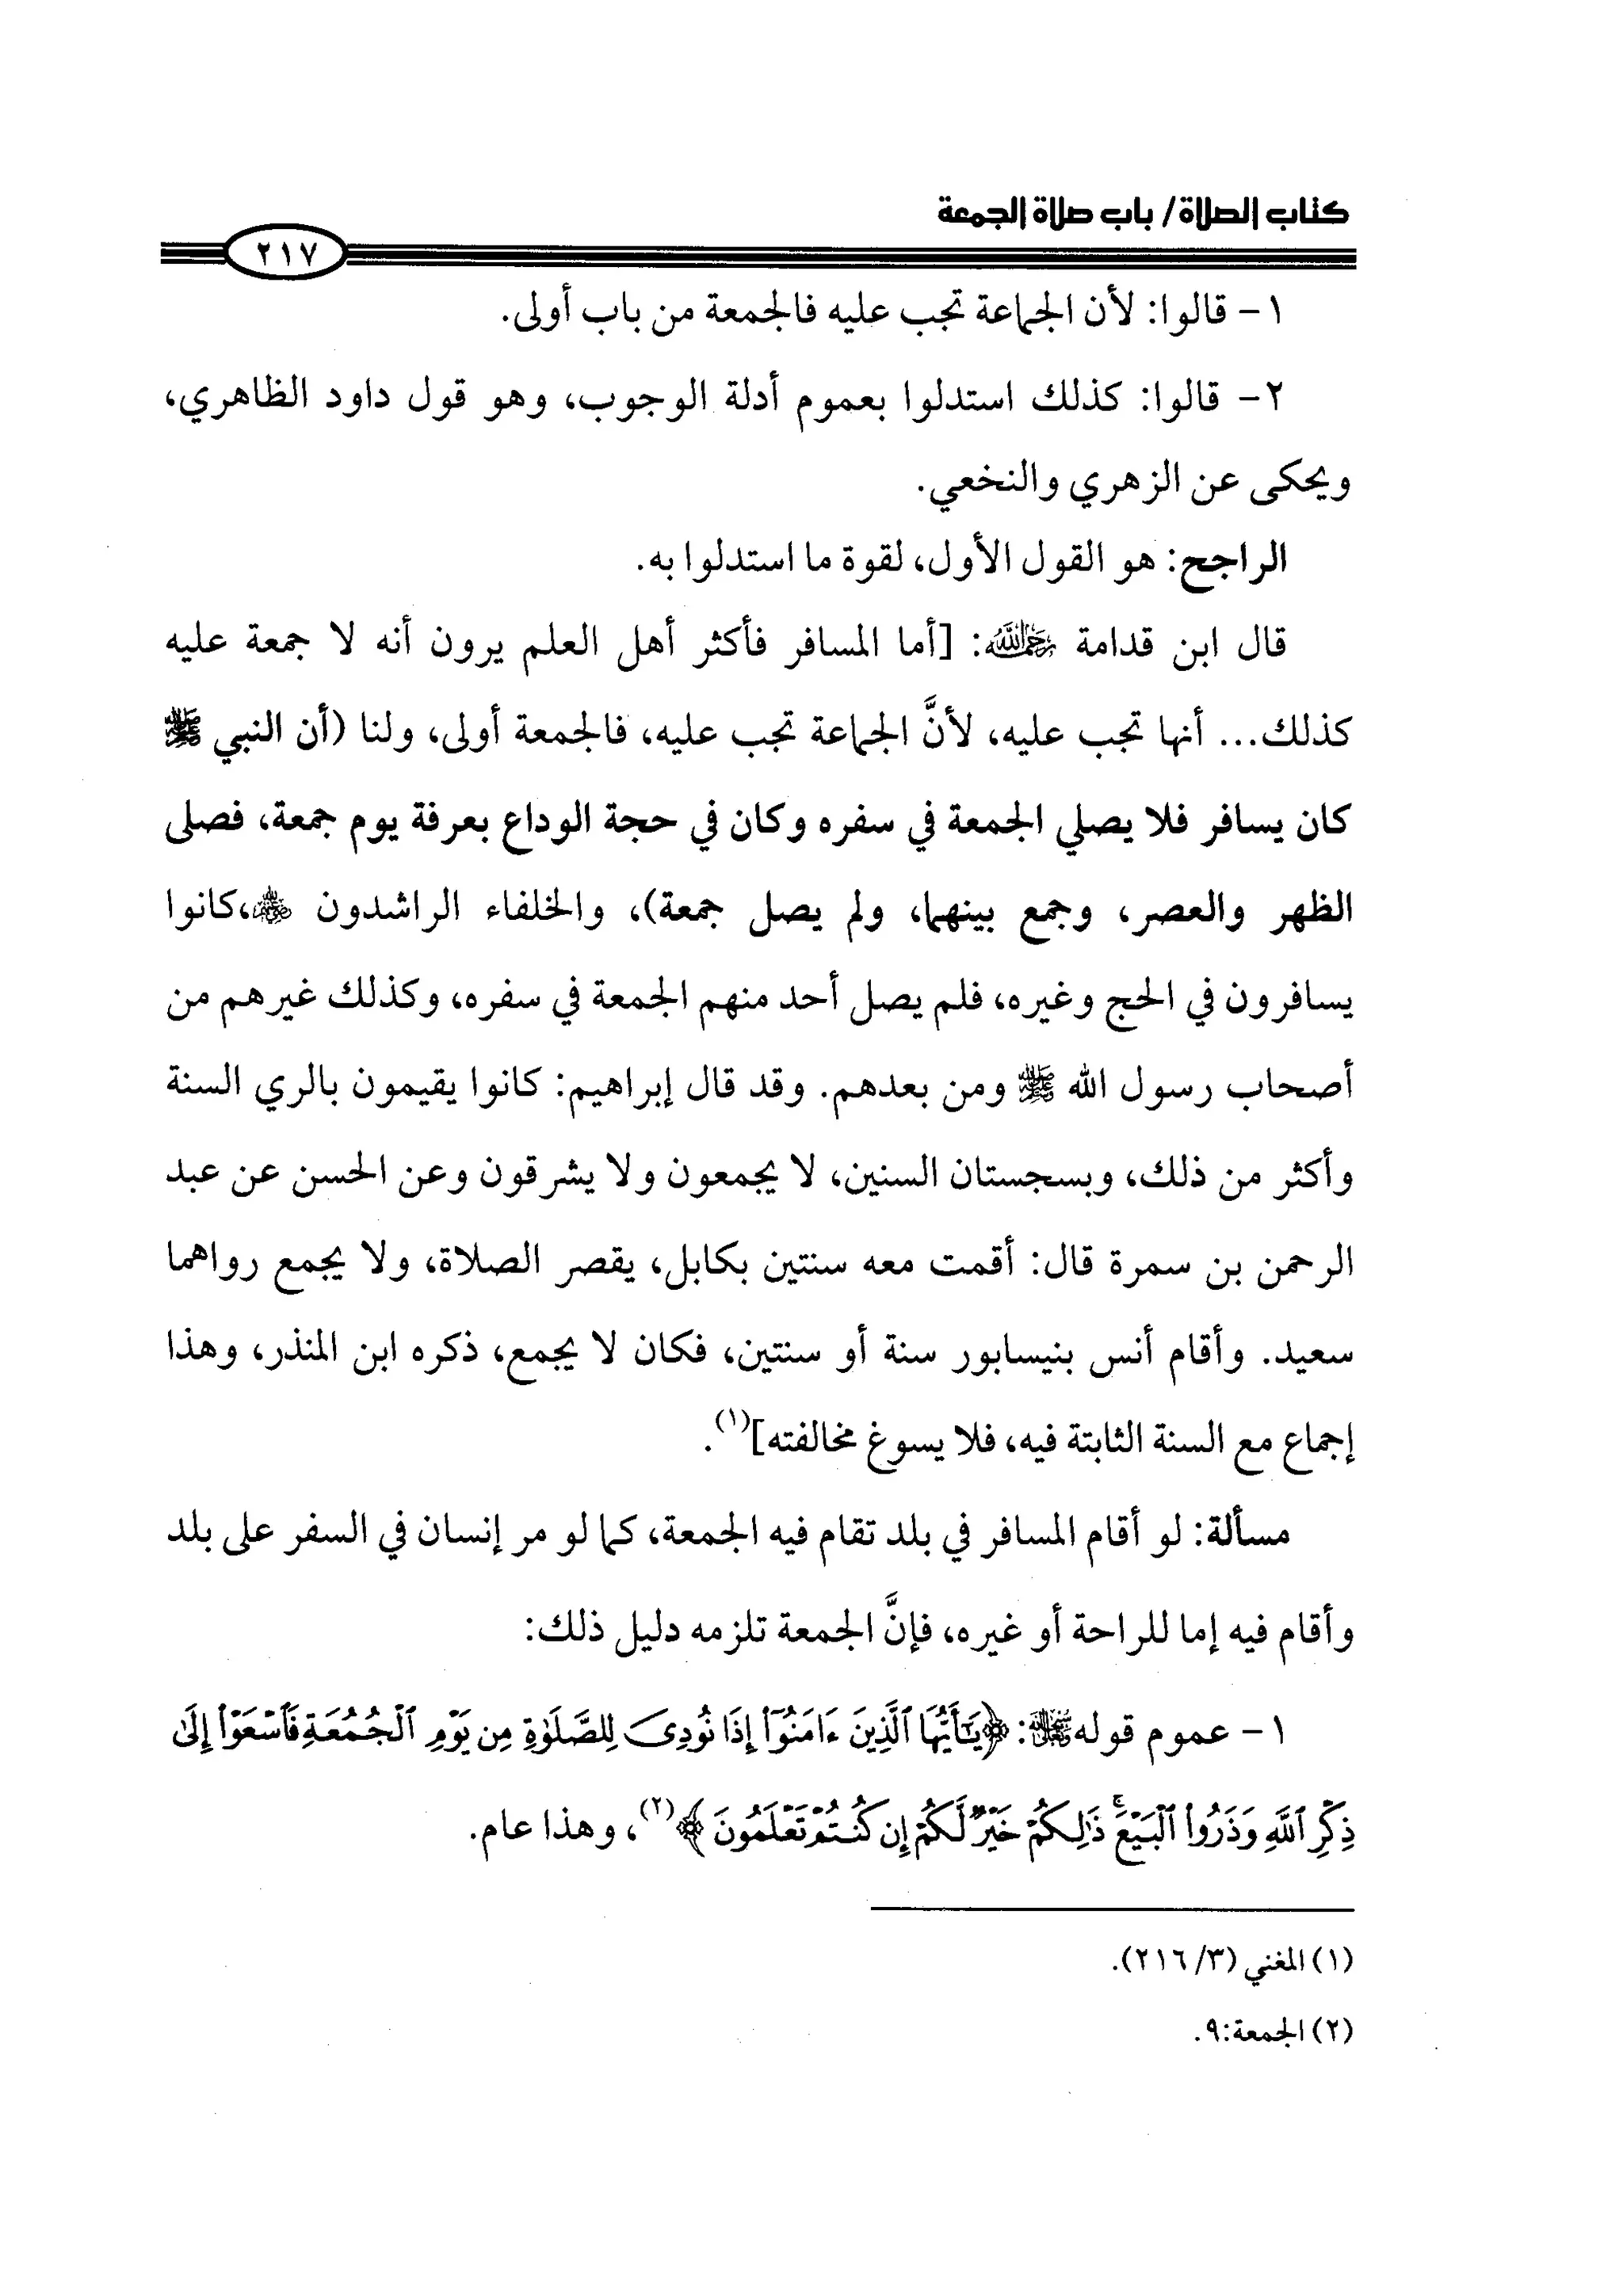 كتاب الصلاة/ باب صلاة الجمعة
٢١٧
١- قالوا: لأن الجماعة تجب عليه فالجمعة من باب أولى.
٢- قالوا: كذلك استدلوا بعموم أدلة الوجوب، وهو قول داود الظاهري،
ويحكى عن الزهري والنخعي.
الراجح: هو القول الأول، لقوة ما استدلوا به.
قال ابن قدامة رحمه الله: [أما المسافر فأكثر أهل العلم يرون أنه لا جمعة عليه
كذلك... أنها تجب عليه، لأنَّ الجماعة تجب عليه، فالجمعة أولى، ولنا (أن النبي ﷺ
كان يسافر فلا يصلي الجمعة في سفره وكان في حجة الوداع بعرفة يوم جمعة، فصلى
الظهر والعصر، وجمع بينهما، ولم يصل جمعة)، والخلفاء الراشدون ،كانوا
يسافرون في الحج وغيره، فلم يصل أحد منهم الجمعة في سفره، وكذلك غيرهم من
أصحاب رسول الله ﷺ ومن بعدهم. وقد قال إبراهيم: كانوا يقيمون بالري السنة
وأكثر من ذلك، وبسجستان السنين، لا يجمعون ولا يشرقون وعن الحسن عن عبد
الرحمن بن سمرة قال: أقمت معه سنتين بكابل، يقصر الصلاة، ولا يجمع رواهما
سعيد. وأقام أنس بنيسابور سنة أو سنتين، فكان لا يجمع، ذكره ابن المنذر، وهذا
إجماع مع السنة الثابتة فيه، فلا يسوغ مخالفته](١).
مسألة: لو أقام المسافر في بلد تقام فيه الجمعة، كما لو مر إنسان في السفر على بلد
وأقام فيه إما للراحة أو غيره، فإنَّ الجمعة تلزمه دليل ذلك:
١- عموم قوله: ﴿يَٰٓأَيُّهَا ٱلَّذِينَ ءَامَنُوٓا۟ إِذَا نُودِىَ لِلصَّلَوٰةِ مِن يَوْمِ ٱلْجُمُعَةِ فَٱسْعَوْا۟ إِلَىٰ
ذِكْرِ ٱللَّهِ وَذَرُوا۟ ٱلْبَيْعَ ۚ ذَٰلِكُمْ خَيْرٌ لَّكُمْ إِن كُنتُمْ تَعْلَمُونَ﴾(٢)، وهذا عام.
(١) المغني (٣/ ٢١٦).
(٢) الجمعة:٩.